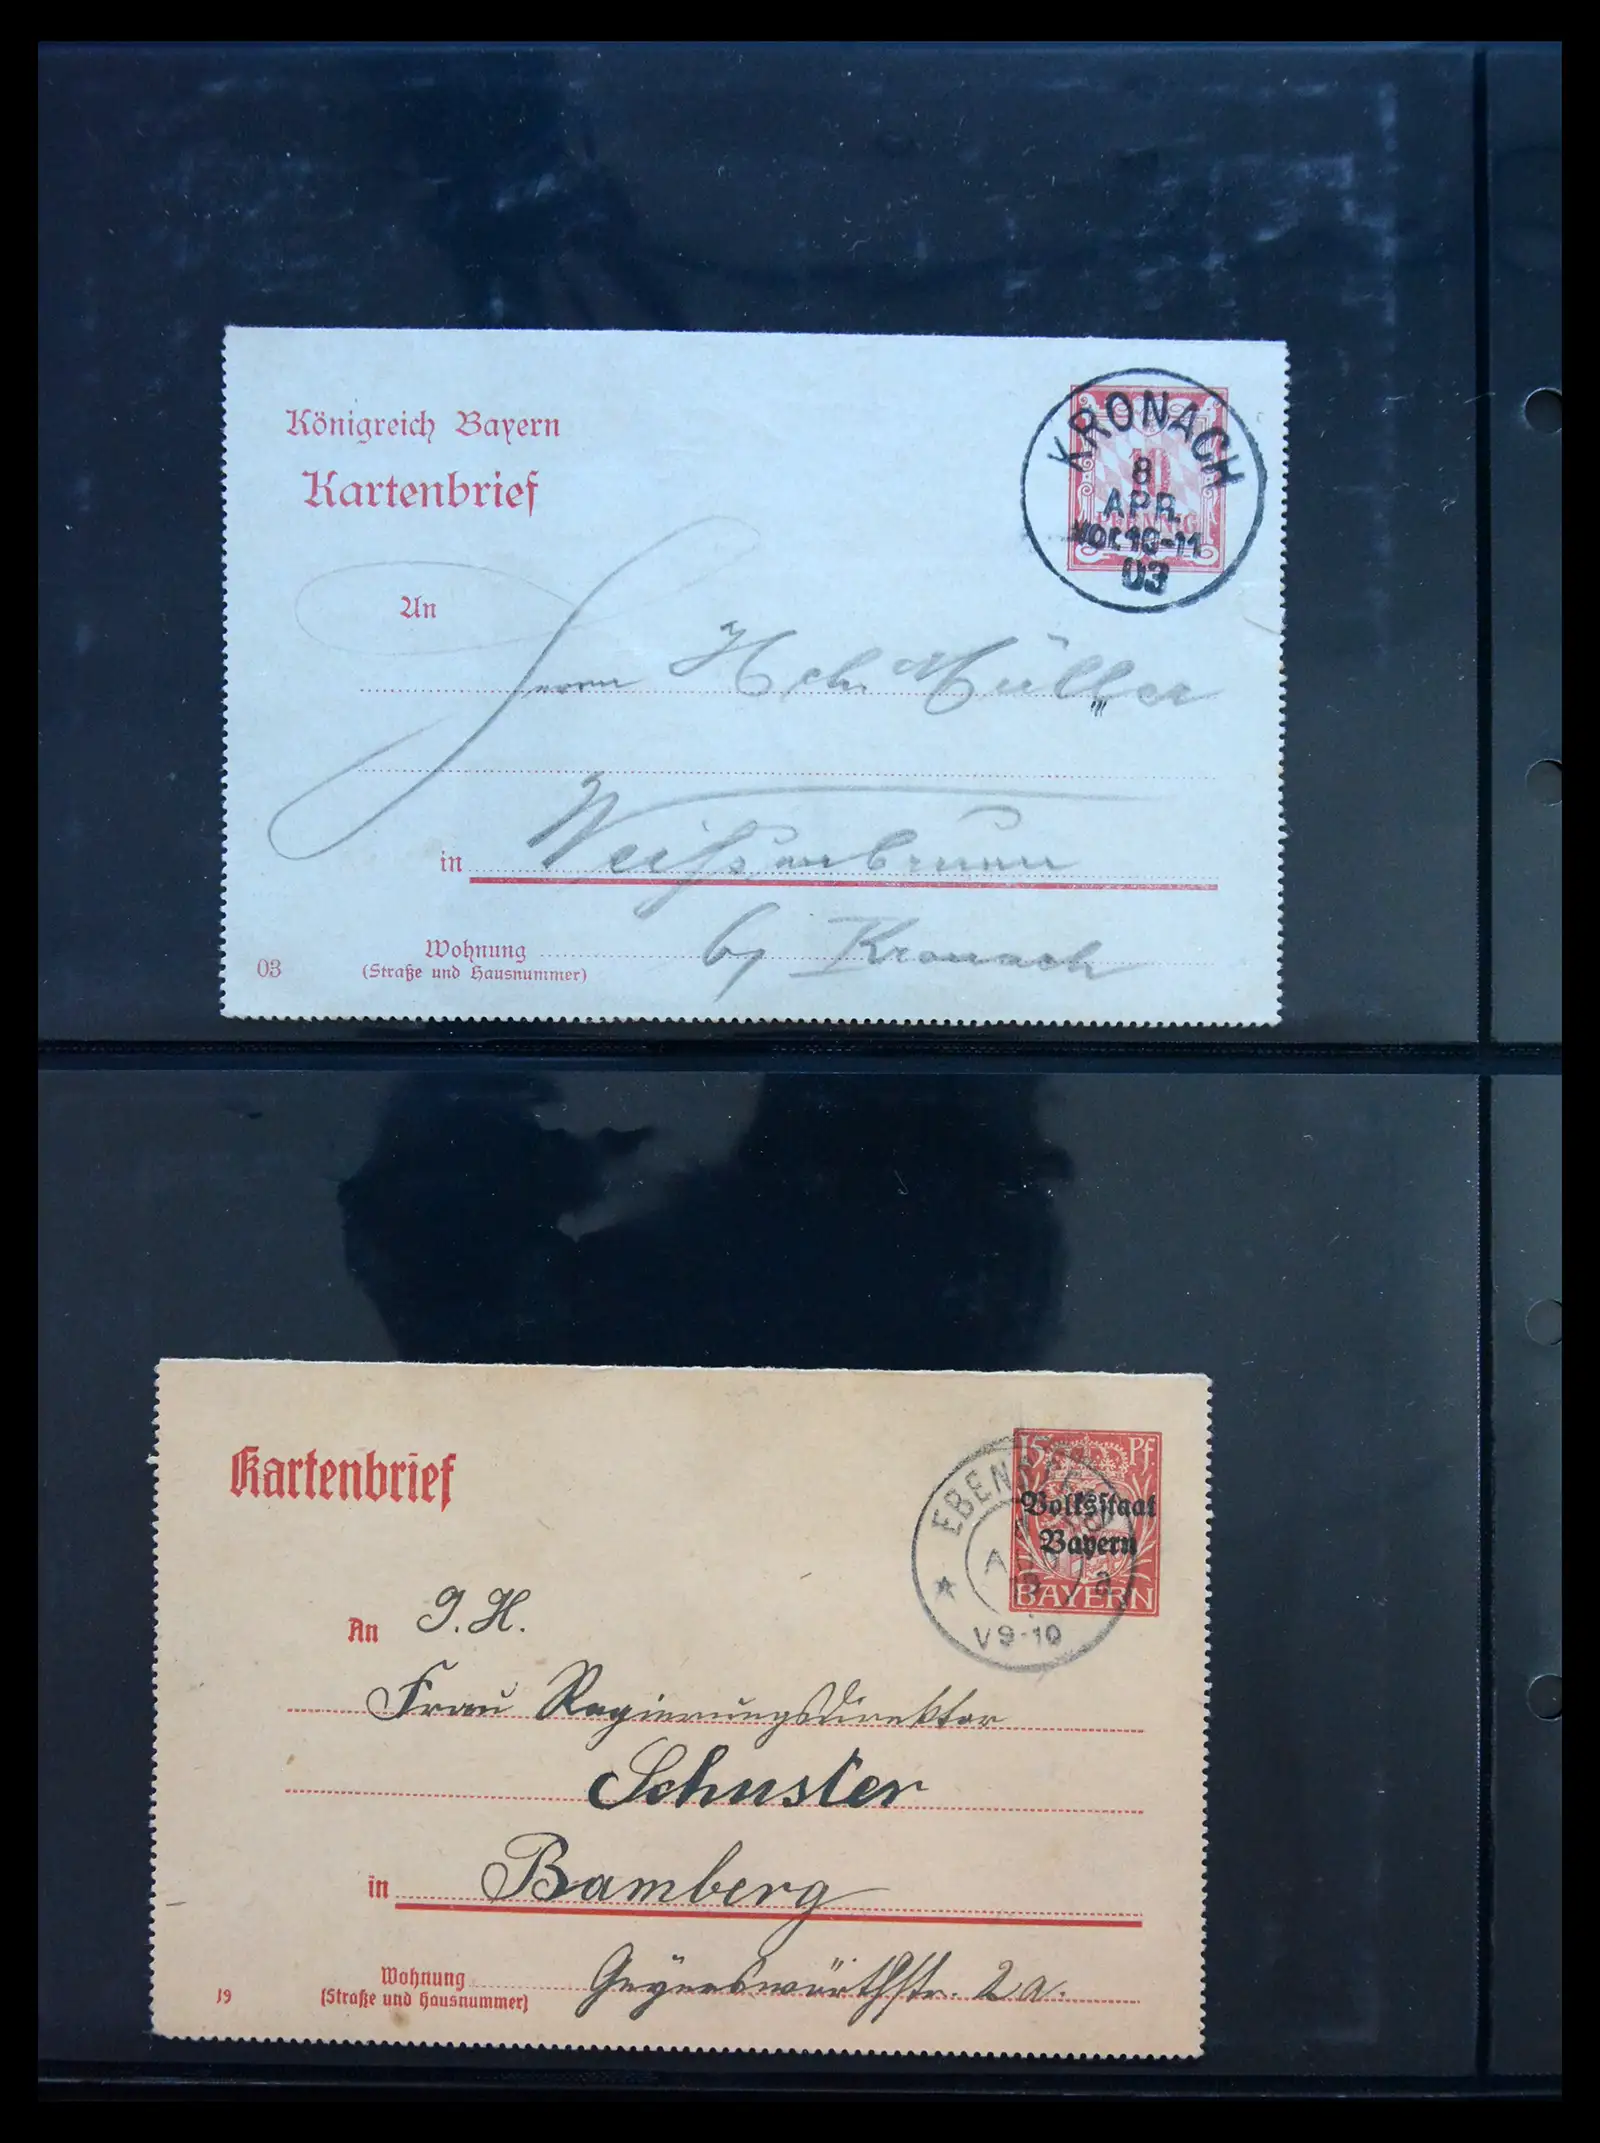 Königreich Bayern
Kartenbrief
10
PFENNIG
KRONACH
8
APR.
Vor.10-11
03
An
Herrn Hch. Müller
in Weißenbrunn
b/ Kronach
Wohnung
(Straße und Hausnummer)
03
Kartenbrief
15 Pf.
Volksstaat
Bayern
BAYERN
V9-10
An J. H.
Frau Regierungsdirektor
Schuster
in Bamberg
Wohnung Geyerswörthstr. 2a.
(Straße und Hausnummer)
19